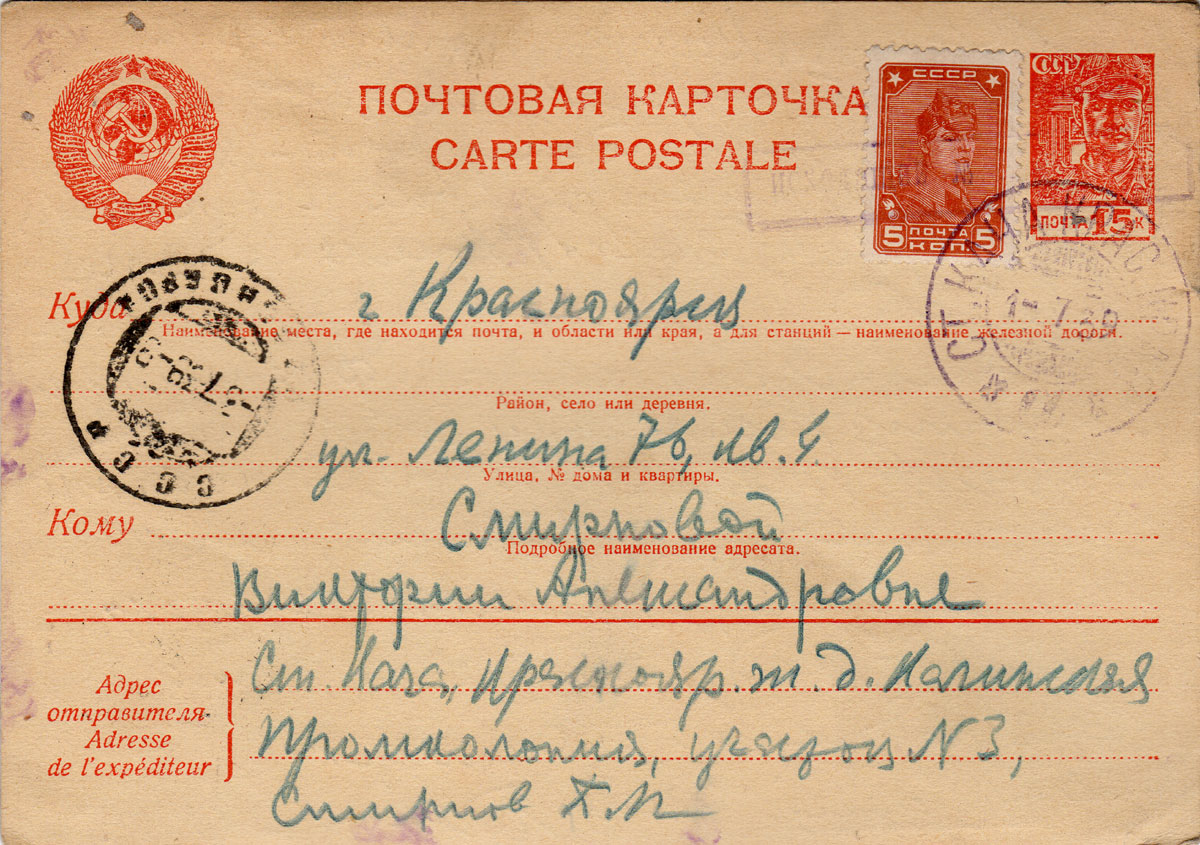 ПОЧТОВАЯ КАРТОЧКА
CARTE POSTALE
СССР
5 ПОЧТА КОП. 5
СССР
ПОЧТА 15 К
Куда г Красноярск
Наименование места, где находится почта, и области или края, а для станций — наименование железной дороги.
Район, село или деревня.
ул. Ленина 76, кв.
Улица, № дома и квартиры.
Кому Смирновой
Подробное наименование адресата.
Виктории Александровне
Адрес отправителя
Adresse de l'expéditeur
Ст. Кача, Краснояр. ж. д. Качинская
Промколония, участок N 3,
Смирнов
СТ. КАЧА КРАС
1-7 39
СССР